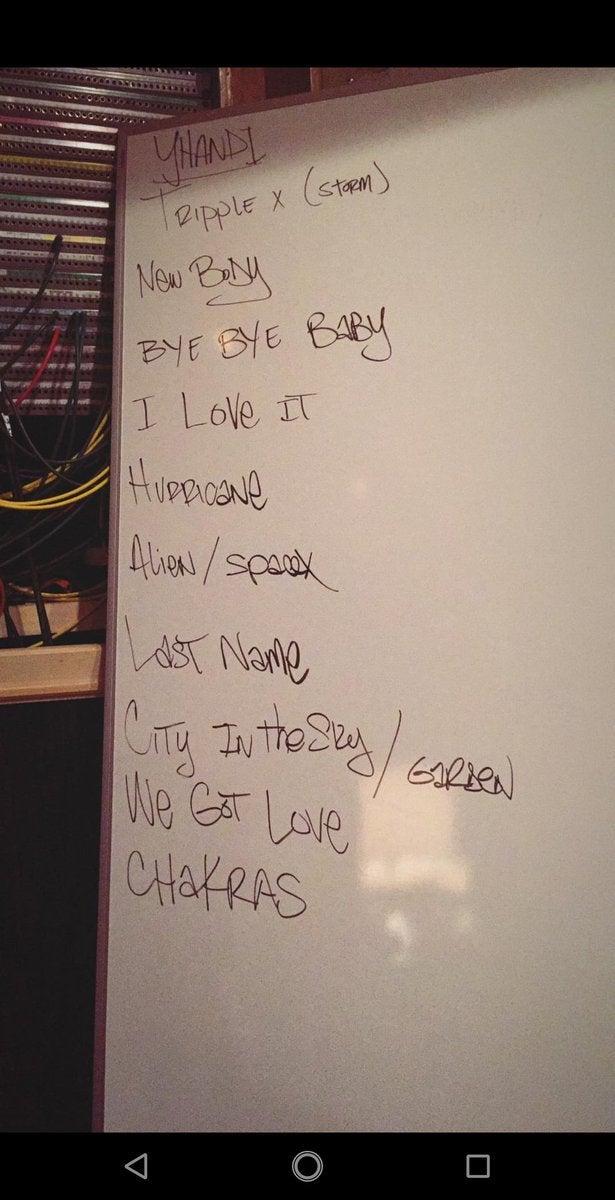 YHANDI
TRIPPLE X (STORM)
New BODY
BYE BYE BABY
I LOVE IT
HURRICANE
Alien / SPACEX
LAST NAMe
CITY IN the SKY / GARDEN
We GOT LOVE
CHAKRAS